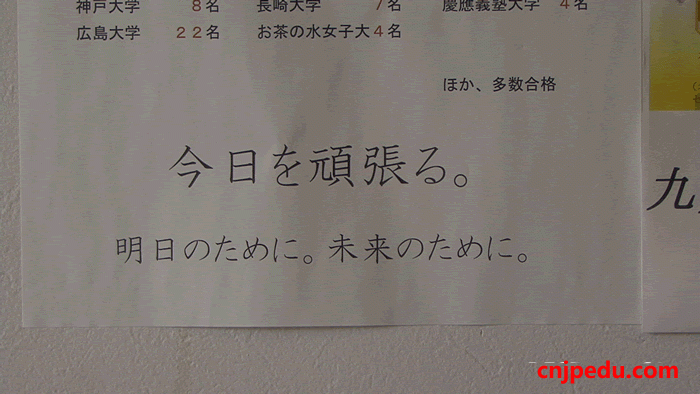 神戸大学 8名 長崎大学 7名 慶應義塾大学 4名
広島大学 22名 お茶の水女子大4名
ほか、多数合格
今日を頑張る。
明日のために。未来のために。
九
cnjpedu.com